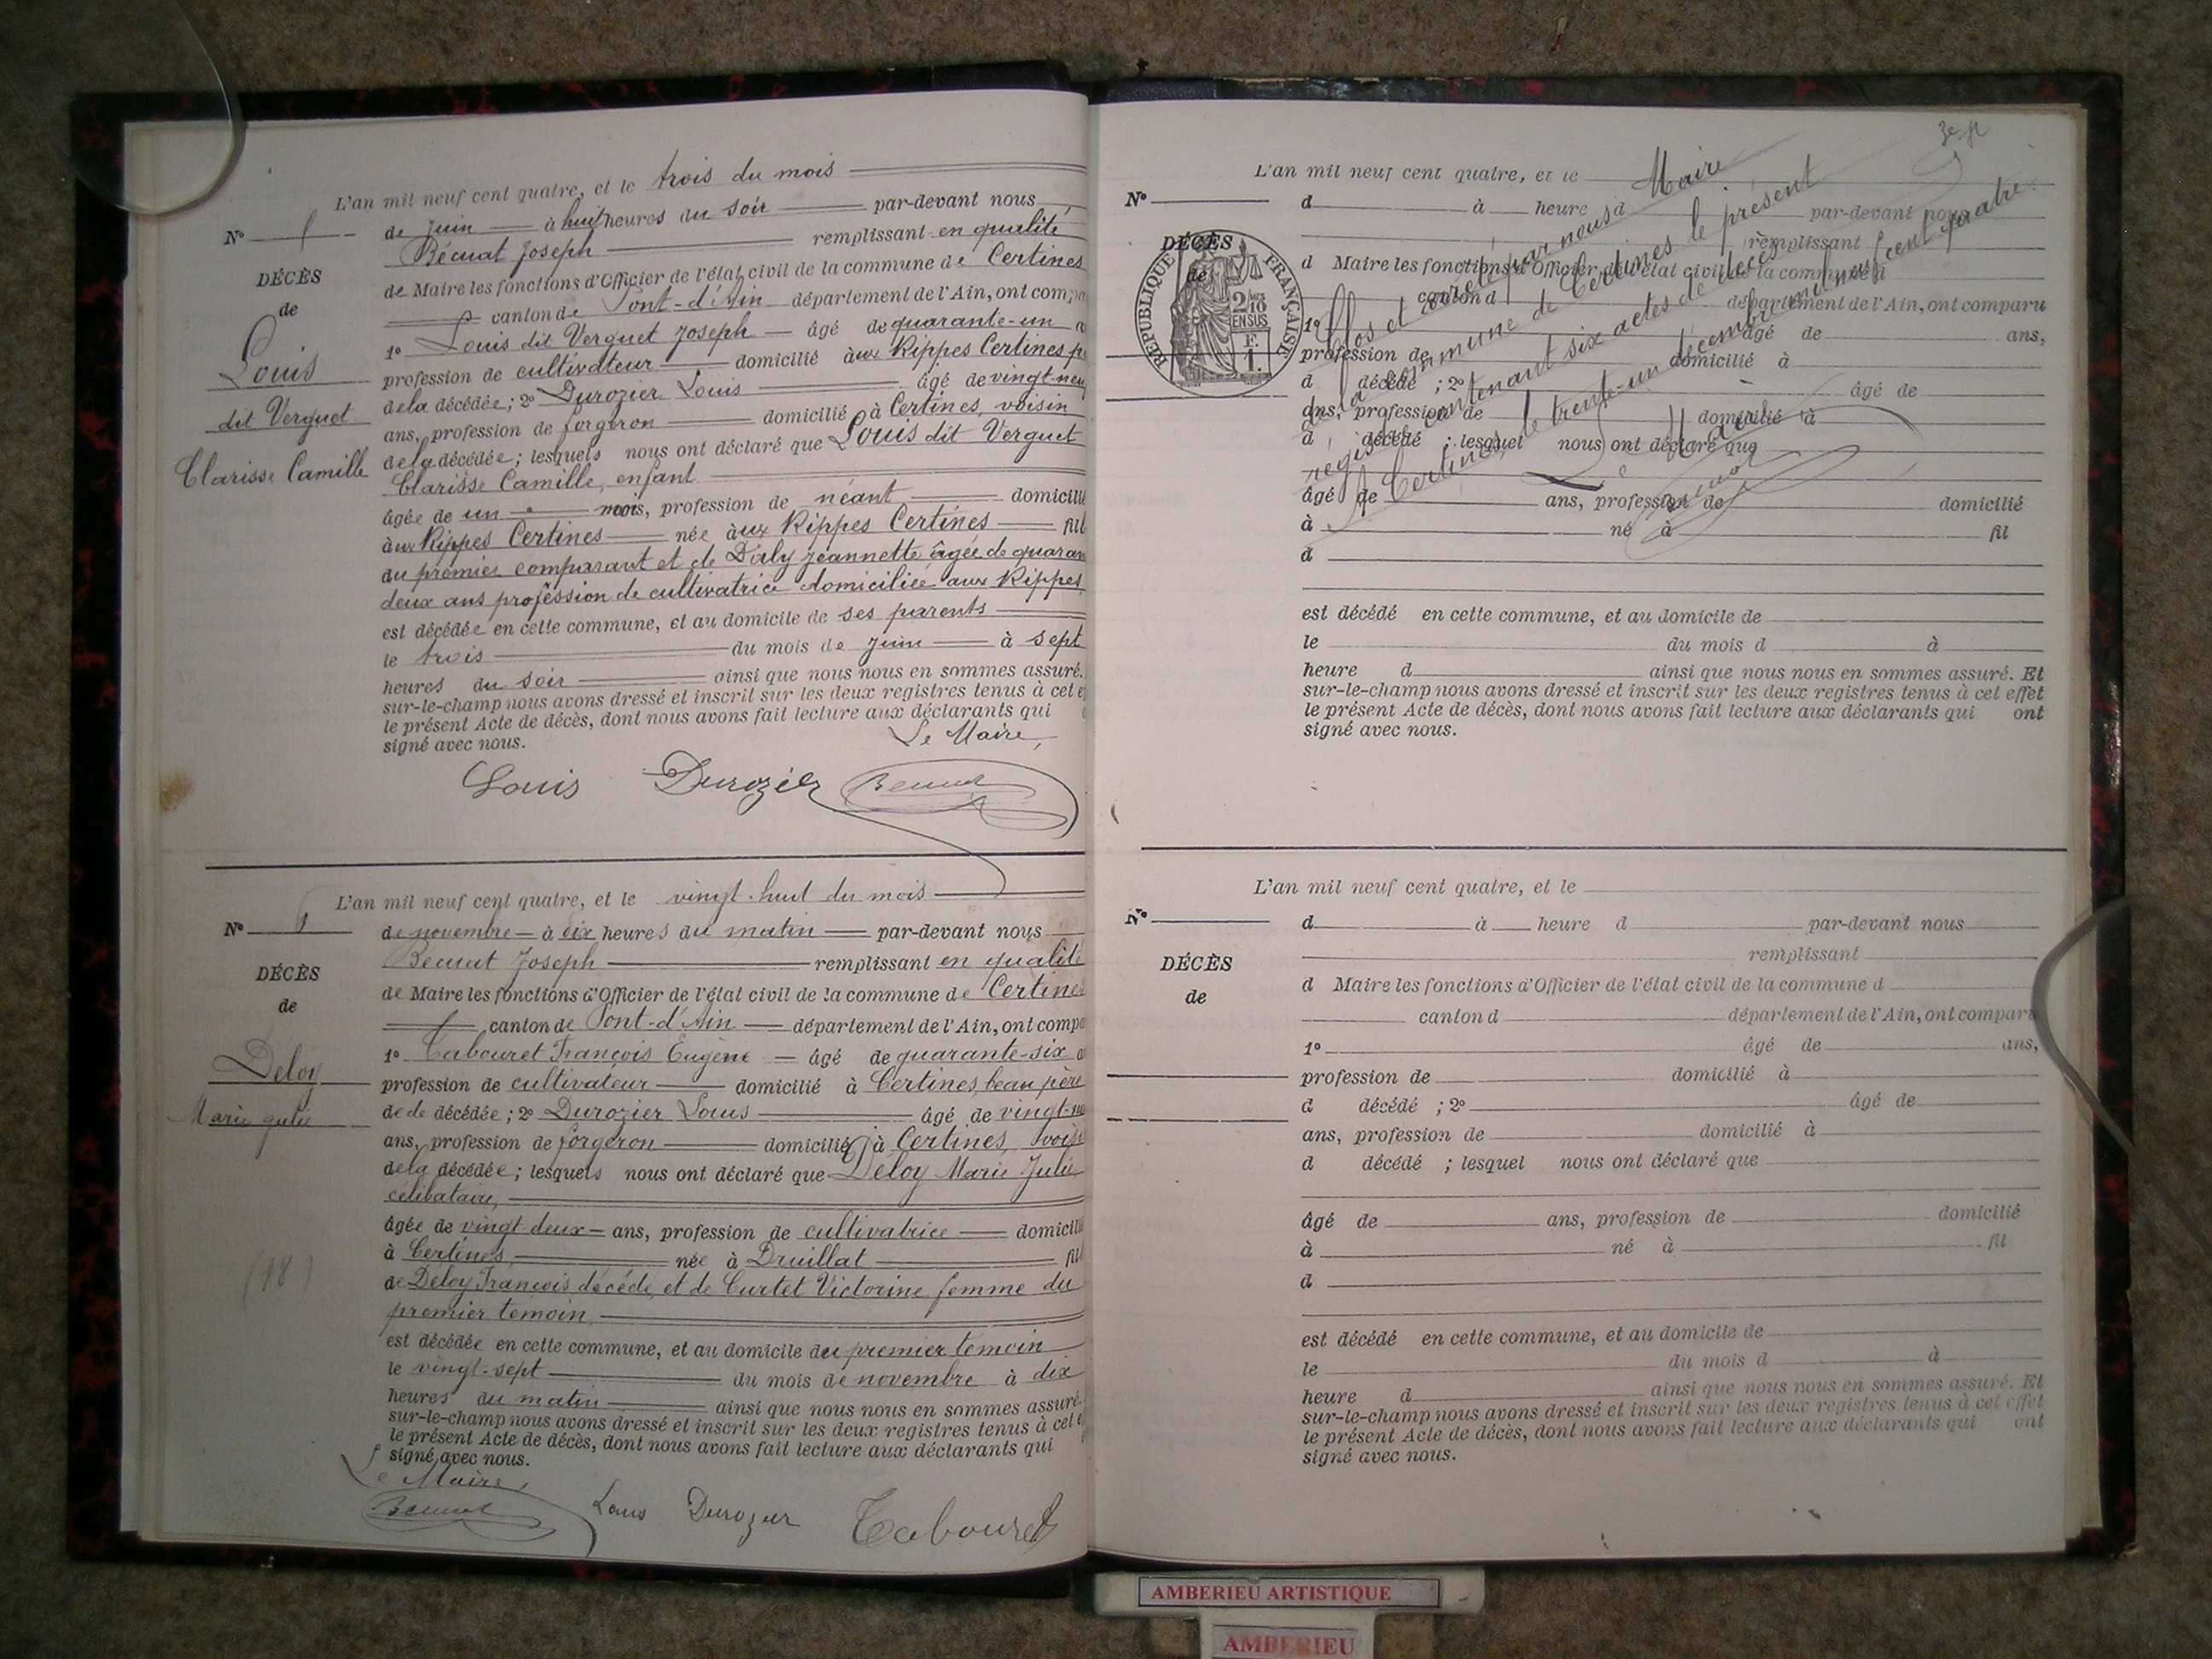 L'an mil neuf cent quatre, et le trois du mois
de juin à huit heures du soir par-devant nous
Nº
Bécuat Joseph remplissant en qualité
DÉCÈS
de Maire les fonctions d'Officier de l'état civil de la commune de Certines
de
canton de Pont-d'Ain département de l'Ain, ont comp
1º Louis dit Verguet Joseph âgé de quarante-un
Louis
profession de cultivateur domicilié aux Rippes Certines p
de la décédée ; 2º Durozier Louis âgé de vingt-neu
dit Verguet
ans, profession de forgeron domicilié à Certines, voisin
de la décédée ; lesquels nous ont déclaré que Louis dit Verguet
Clarisse Camille
Clarisse Camille, enfant
âgée de un mois, profession de néant domicilié
aux Rippes Certines née aux Rippes Certines fil
du premier comparant et de Daly Jeannette âgée de quaran
deux ans profession de cultivatrice domiciliée aux Rippes
est décédée en cette commune, et au domicile de ses parents
le trois du mois de juin à sept
heures du soir ainsi que nous nous en sommes assuré.
sur-le-champ nous avons dressé et inscrit sur les deux registres tenus à cet e
le présent Acte de décès, dont nous avons fait lecture aux déclarants qui
signé avec nous.
Le Maire,
Louis Durozier Bécuat
L'an mil neuf cent quatre, et le vingt-huit du mois
Nº 6
de novembre à dix heures du matin par-devant nous
Bécuat Joseph remplissant en qualité
DÉCÈS
de Maire les fonctions d'Officier de l'état civil de la commune de Certines
de
canton de Pont-d'Ain département de l'Ain, ont compa
1º Tabouret François Eugène âgé de quarante-six
Déloy
profession de cultivateur domicilié à Certines, beau père
Marie Julie
de de décédée ; 2º Durozier Louis âgé de vingt-ne
ans, profession de forgeron domicilié à Certines, voisi
de la décédée ; lesquels nous ont déclaré que Déloy Marie Julie
célibataire,
âgée de vingt deux ans, profession de cultivatrice domicilié
à Certines née à Druillat fil
de Déloy François décédé et de Curtet Victorine femme du
(18)
premier témoin
est décédée en cette commune, et au domicile du premier témoin
le vingt-sept du mois de novembre à dix
heures du matin ainsi que nous nous en sommes assuré.
sur-le-champ nous avons dressé et inscrit sur les deux registres tenus à cet e
le présent Acte de décès, dont nous avons fait lecture aux déclarants qui
signé avec nous.
Le Maire,
Bécuat Louis Durozier Tabouret
L'an mil neuf cent quatre, et le
Nº
d à heure d par-devant nous
remplissant
DÉCÈS
de
d Maire les fonctions d'Officier de l'état civil de la commune d
canton d département de l'Ain, ont comparu
1º âgé de ans,
profession de domicilié à
d décédé ; 2º âgé de
ans, profession de domicilié à
d décédé ; lesquel nous ont déclaré que
âgé de ans, profession de domicilié
à né à fil
d
est décédé en cette commune, et au domicile de
le du mois d à
heure d ainsi que nous nous en sommes assuré. Et
sur-le-champ nous avons dressé et inscrit sur les deux registres tenus à cet effet
le présent Acte de décès, dont nous avons fait lecture aux déclarants qui ont
signé avec nous.
RÉPUBLIQUE FRANÇAISE
2/10 EN SUS
Clos et arrêté par nous Maire
de la commune de Certines le présent
registre contenant six actes de décès
à Certines, le trente-un décembre mil neuf cent quatre
Le Maire
Bécuat
L'an mil neuf cent quatre, et le
Nº
d à heure d par-devant nous
remplissant
DÉCÈS
d Maire les fonctions d'Officier de l'état civil de la commune d
de
canton d département de l'Ain, ont comparu
1º âgé de ans,
profession de domicilié à
d décédé ; 2º âgé de
ans, profession de domicilié à
d décédé ; lesquel nous ont déclaré que
âgé de ans, profession de domicilié
à né à fil
d
est décédé en cette commune, et au domicile de
le du mois d à
heure d ainsi que nous nous en sommes assuré. Et
sur-le-champ nous avons dressé et inscrit sur les deux registres tenus à cet effet
le présent Acte de décès, dont nous avons fait lecture aux déclarants qui ont
signé avec nous.
AMBERIEU ARTISTIQUE
AMBERIEU